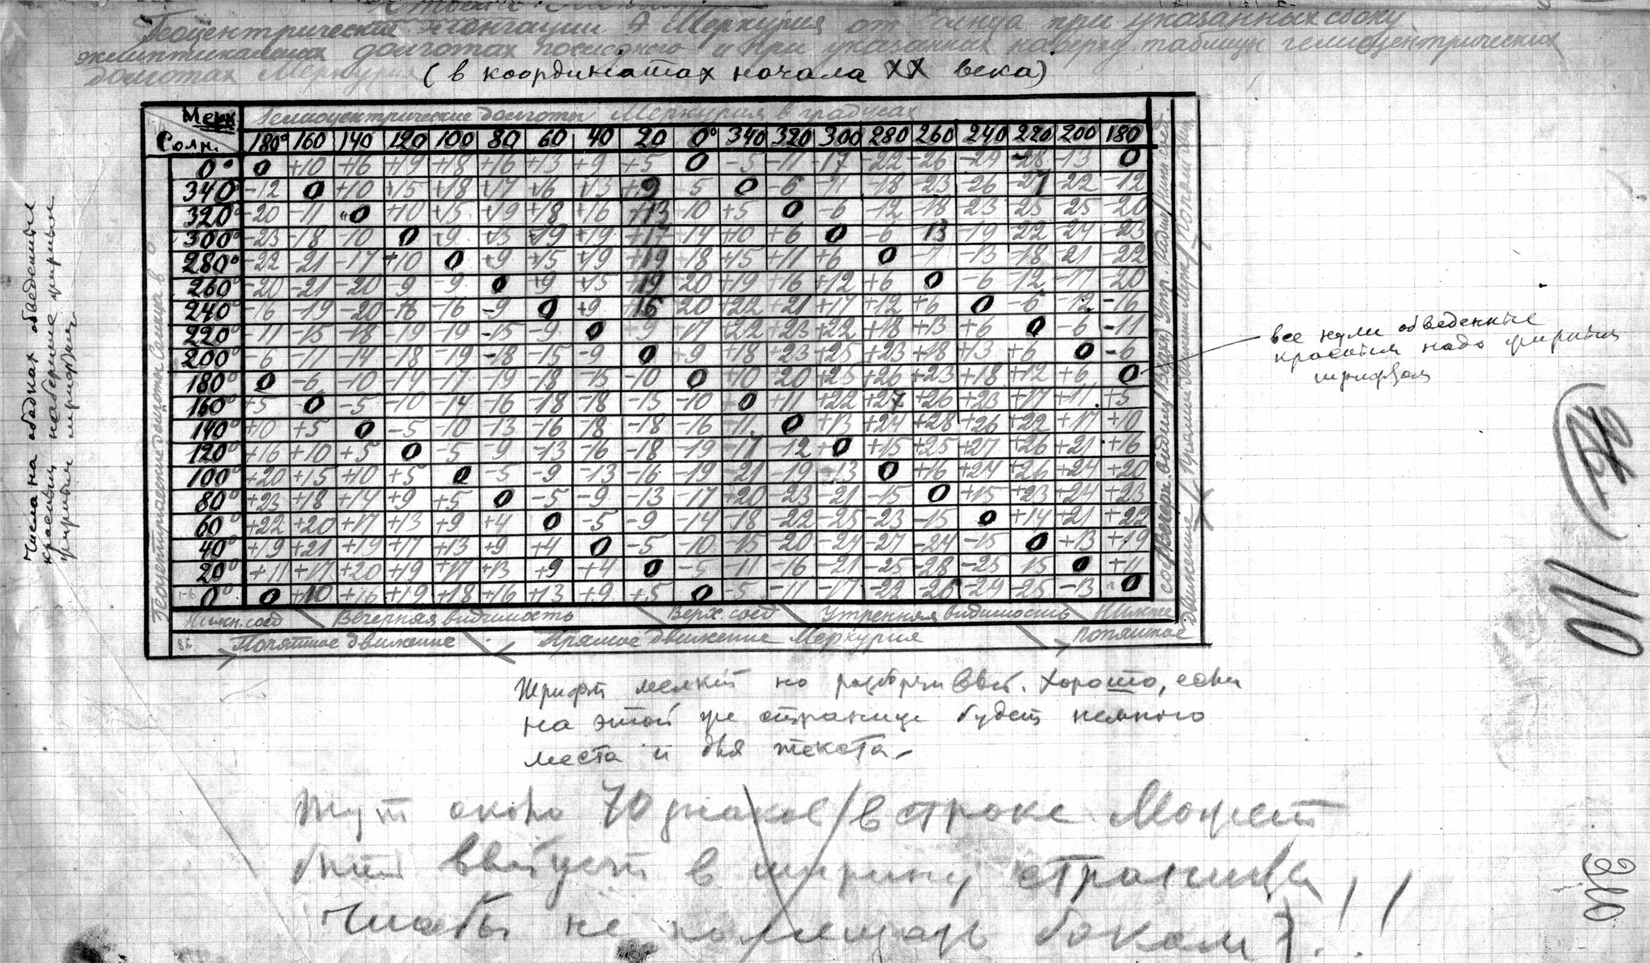 Геоцентрические элонгации Меркурия от Солнца при указанных сбоку
эклиптикальных долготах последнего и при указанных наверху таблицы гелиоцентрических
долготах Меркурия (в координатах начала XX века)
Мерк Гелиоцентрические долготы Меркурия в градусах
Солн. 180° 160 140 120 100 80 60 40 20 0° 340 320 300 280 260 240 220 200 180
0° 0 +10 +16 +19 +18 +16 +13 +9 +5 0 -5 -11 -17 -22 -26 -29 -28 -13 0
340° -12 0 +10 +15 +18 +17 +16 +13 +9 5 0 -6 -11 -18 -23 -26 -27 -22 -12
320° -20 -11 0 +10 +15 +19 +18 +16 +13 +10 +5 0 -6 -12 -18 -23 -25 -25 -20
300° -23 -18 -10 0 +9 +19 +19 +17 +14 +10 +6 0 -6 13 -19 -22 -24 -23
280° -22 -21 -17 +10 0 +9 +15 +19 +19 +18 +15 +11 +6 0 -7 -13 -18 -21 -22
260° -20 -21 -20 -9 -9 0 +9 +15 19 20 +19 +16 +12 +6 0 -6 -12 -17 -20
240° -16 -19 -20 -18 -16 -9 0 +9 16 20 +22 +21 +17 +12 +6 0 -6 -12 -16
220° -11 -15 -18 -19 -19 -15 -9 0 +9 +17 +22 +23 +22 +18 +13 +6 0 -6 -11
200° -6 -11 -14 -18 -19 -18 -15 -9 0 +9 +18 +23 +25 +23 +18 +13 +6 0 -6
180° 0 -6 -10 -14 -17 -19 -18 -15 -10 0 +10 20 +25 +26 +23 +18 +12 +6 0
160° +5 0 -5 -10 -14 -16 -18 -18 -15 -10 0 +11 +22 +27 +26 +23 +17 +11 +5
140° +10 +5 0 -5 -10 -13 -16 -18 -18 -16 -11 0 +13 +24 +28 +26 +22 +17 +10
120° +16 +10 +5 0 -5 -9 -13 -16 -18 -19 -17 -12 0 +15 +25 +27 +26 +21 +16
100° +20 +15 +10 +5 0 -5 -9 -13 -16 -19 -21 -19 -13 0 +16 +24 +26 +24 +20
80° +23 +18 +14 +9 +5 0 -5 -9 -13 -17 +20 -23 -21 -15 0 +15 +23 +24 +23
60° +22 +20 +17 +13 +9 +4 0 -5 -9 -14 -18 -22 -25 -23 -15 0 +14 +21 +22
40° +19 +21 +19 +17 +13 +9 +4 0 -5 -10 -15 -20 -24 -27 -24 -15 0 +13 +19
20° +11 +17 +20 +19 +17 +13 +9 +4 0 -5 -11 -16 -21 -25 -28 -25 -15 0 +11
0° 0 +10 +16 +19 +18 +16 +13 +9 +5 0 -5 -11 -17 -22 -26 -29 -25 -13 0
Нижн. соед Вечерняя видимость Верх. соед Утренняя видимость Нижнее
Попятное движение Прямое движение Меркурия попятное
Геоцентрические долготы Солнца в °
Числа на ободках обведенные
красным наберите жирным
жирным шрифтом
все нули обведенные
красным надо жирным
шрифтом
Шрифт мелкий но разборчивый. Хорошо, если
на этой же странице будет немного
места и для текста
Тут около 70 знаков в строке Может
быть выйдет в ширину страницы
Чтобы не помещать боком?!!
76
110